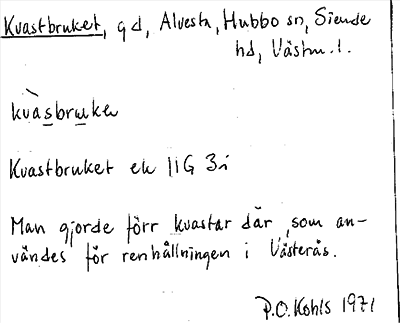 Kvastbruket, gd, Alvesta, Hubbo sn, Siende
hd, Västm.l.
kvàsbruke
Kvastbruket ek 11G 3i
Man gjorde förr kvastar där, som an-
vändes för renhållningen i Västerås.
P.O. Kohls 1971